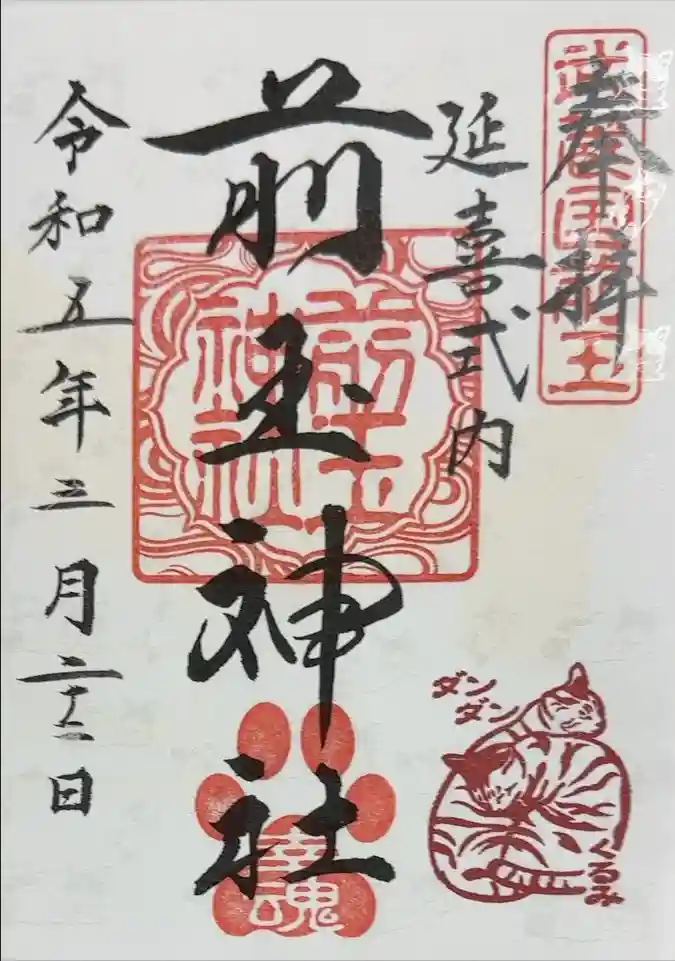 奉拝
武蔵国埼玉
延喜式内
前玉神社
前玉
神社
幸魂
令和五年三月二十二日
ダン
ダン
くるみ